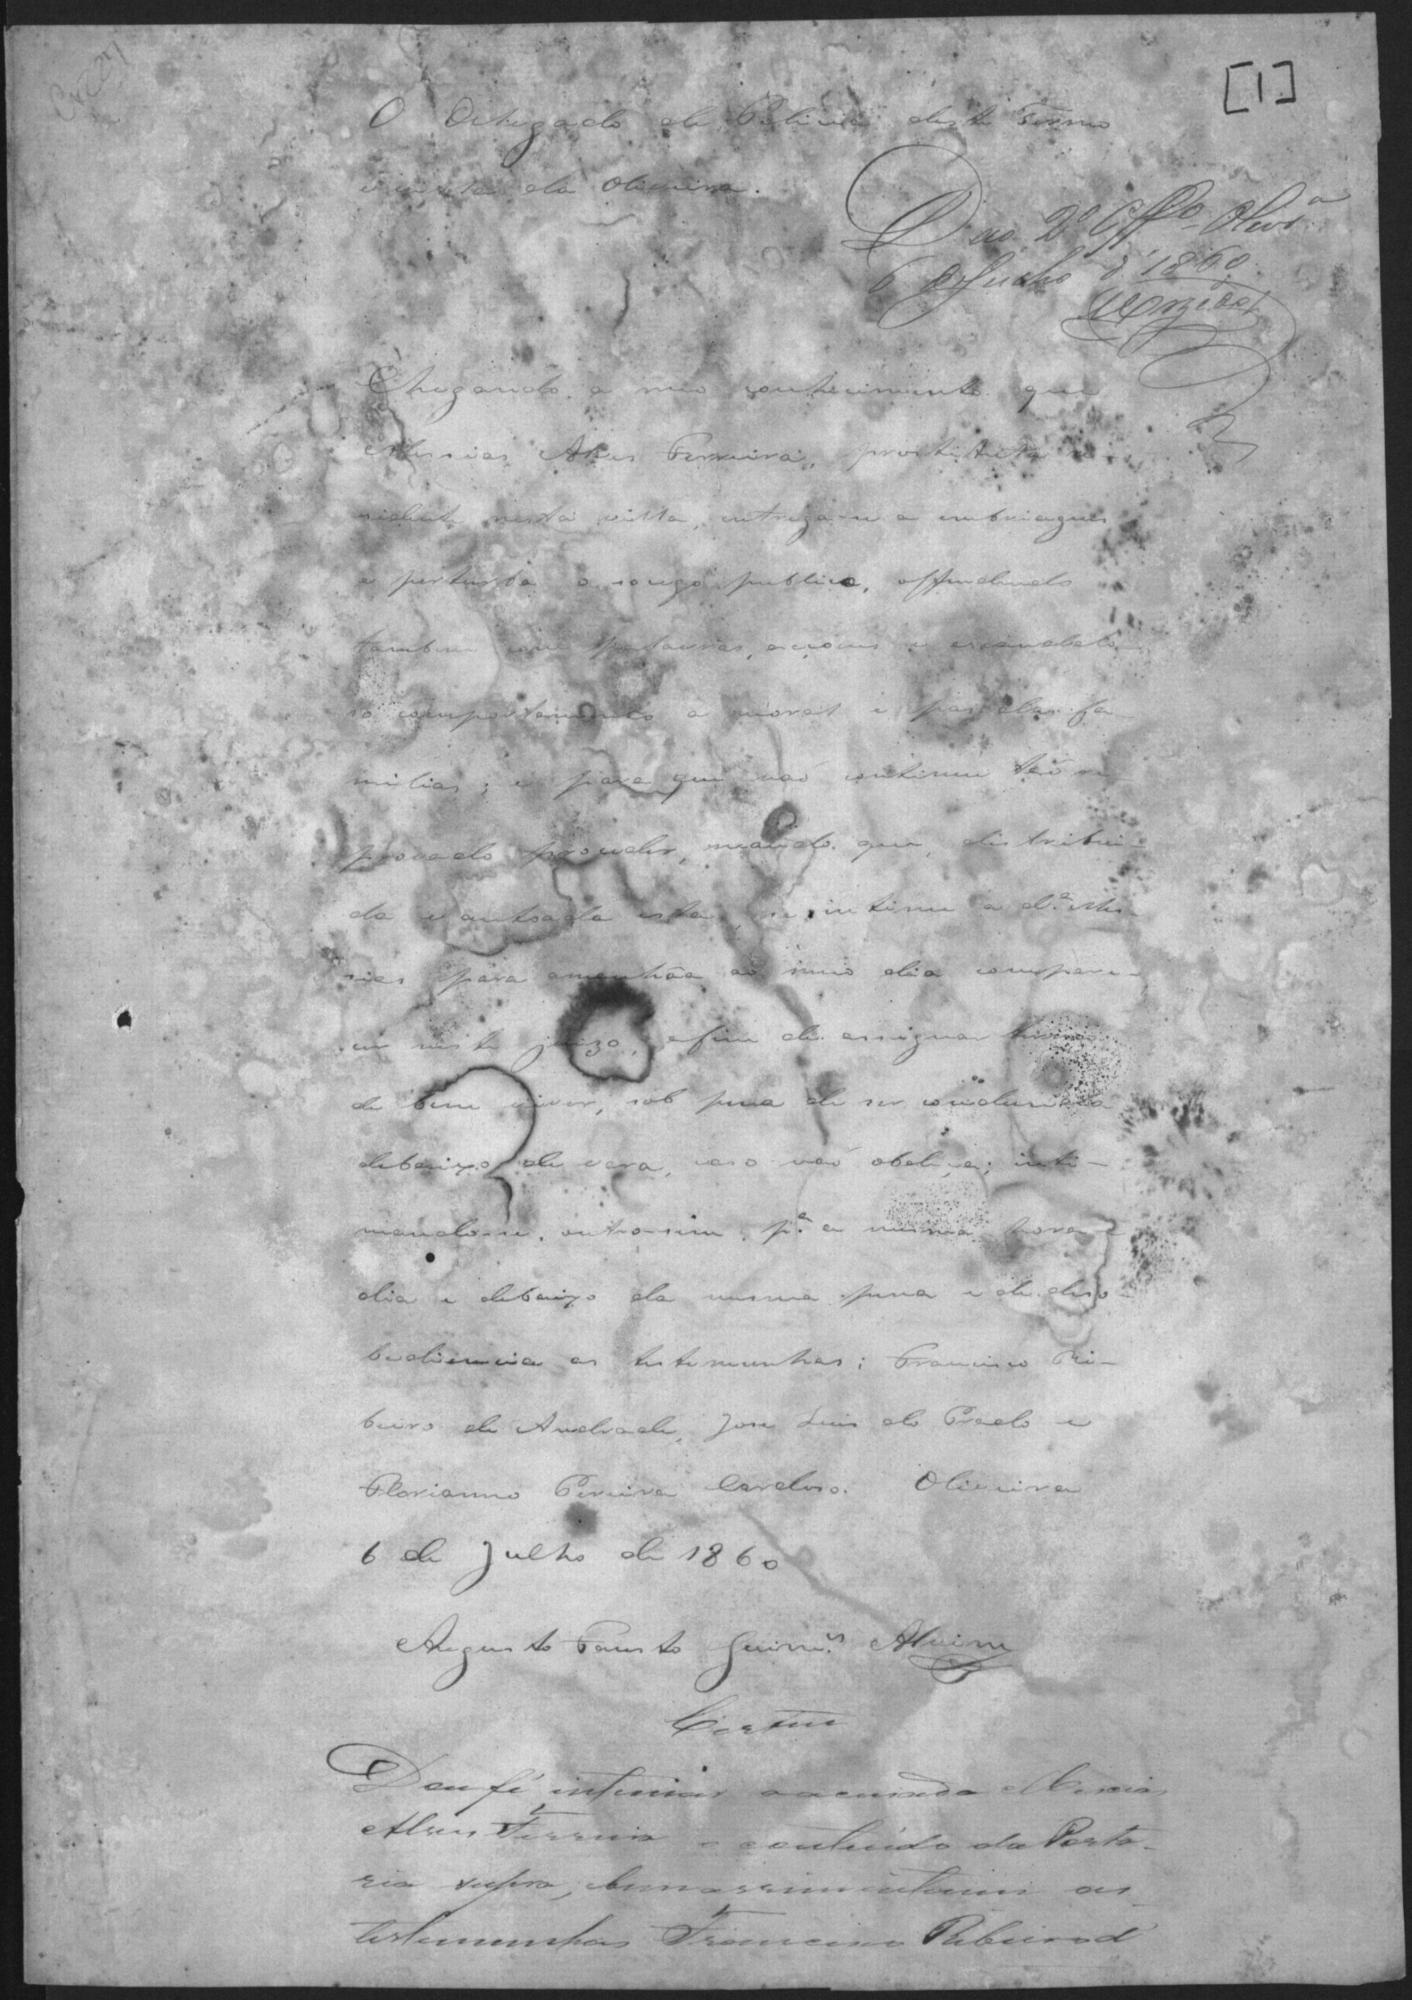 [1]
O Delegado de Policia deste Termo
da Oliveira.
D ao 2º Offº Olivrª
6 de Julho d' 1860
Chegando a meo conhecimento que
Messias Alves Ferreira, prostituta
sidente nesta villa, entrega-se a embriagues
e perturba o socego publico, offendendo
tambem com palavras, acçoens e escandalo-
so comportamento a moral e paz das fa-
milias; e para que não continue tão re-
provado proceder, mando que, distribui-
da e autoada esta, se intime a dª Mes-
sias para amenhãa ao meio dia compare-
cer neste juizo, afim de assignar termo
de bem viver, sob pena de ser conduzida
debaixo de vara, caso não obedeça; inti-
mando-se, outro-sim, pª a mesma hora e
dia e debaixo da mesma pena e de deso-
bediencia as testemunhas: Francisco Ri-
beiro de Andrade, Jose Luis do Prado e
Florianno Pereira Cardoso. Oliveira
6 de Julho de 1860
Augusto Fausto Guimes Alvim
Certeu
Dou fé intimar a acusada Messias
Alves Ferreira o contiudo da Porta-
ria supra, bem assim intimei as
testemunhas Francisco Ribeiro d'